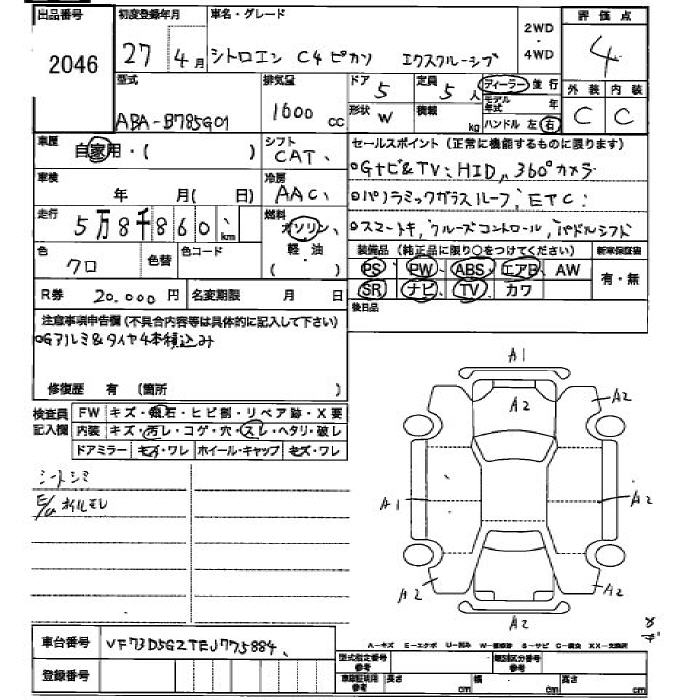 出品番号 初度登録年月 車名・グレード 2WD 評価点
2046 27年4月 シトロエン C4 ピカソ エクスクルーシブ ・4WD 4
型式 排気量 ドア 定員 ディーラー 並行 外装 内装
ABA-B785G01 1600cc 5 5人 モデル年式 年 C C
形状 W 積載 kg ハンドル 左 右
車歴 自家用・( ) シフト CAT、 セールスポイント(正常に機能するものに限ります)
車検 年 月( 日) 冷房 AAC、 ○Gナビ&TV、HID、360°カメラ
走行 5万8千860、km 燃料 ガソリン、 ○パノラミックガラスルーフ、ETC
色 クロ 色替 色コード 軽・油 ○スマートキ、クルーズコントロール、パドルシフト
( ) 装備品(純正品に限り○をつけてください) 新車保証書
R券 20,000円 名変期限 月 日 PS PW ABS エアB AW 有・無
SR ナビ TV カワ
注意事項申告欄(不具合内容等は具体的に記入して下さい) 後日品
○Gアルミ&タイヤ4本積込み
修復歴 有 (箇所 )
検査員記入欄 FW キズ・飛石・ヒビ割・リペア跡・X要
内装 キズ・汚レ・コゲ・穴・スレ・ヘタリ・破レ
ドアミラー キズ・ワレ ホイール・キャップ キズ・ワレ
シートシミ
E/G オイルモレ
A1
A2
A2
A1
A2
A2
A2
A2
A-キズ E-エクボ U-凹み W-補修跡 S-サビ C-腐食 XX-交換済
車台番号 VF73D5GZTEJ775884、
登録番号
型式指定番号 参考 類別区分番号 参考
車庫証明用 参考 長さ cm 幅 cm 高さ cm